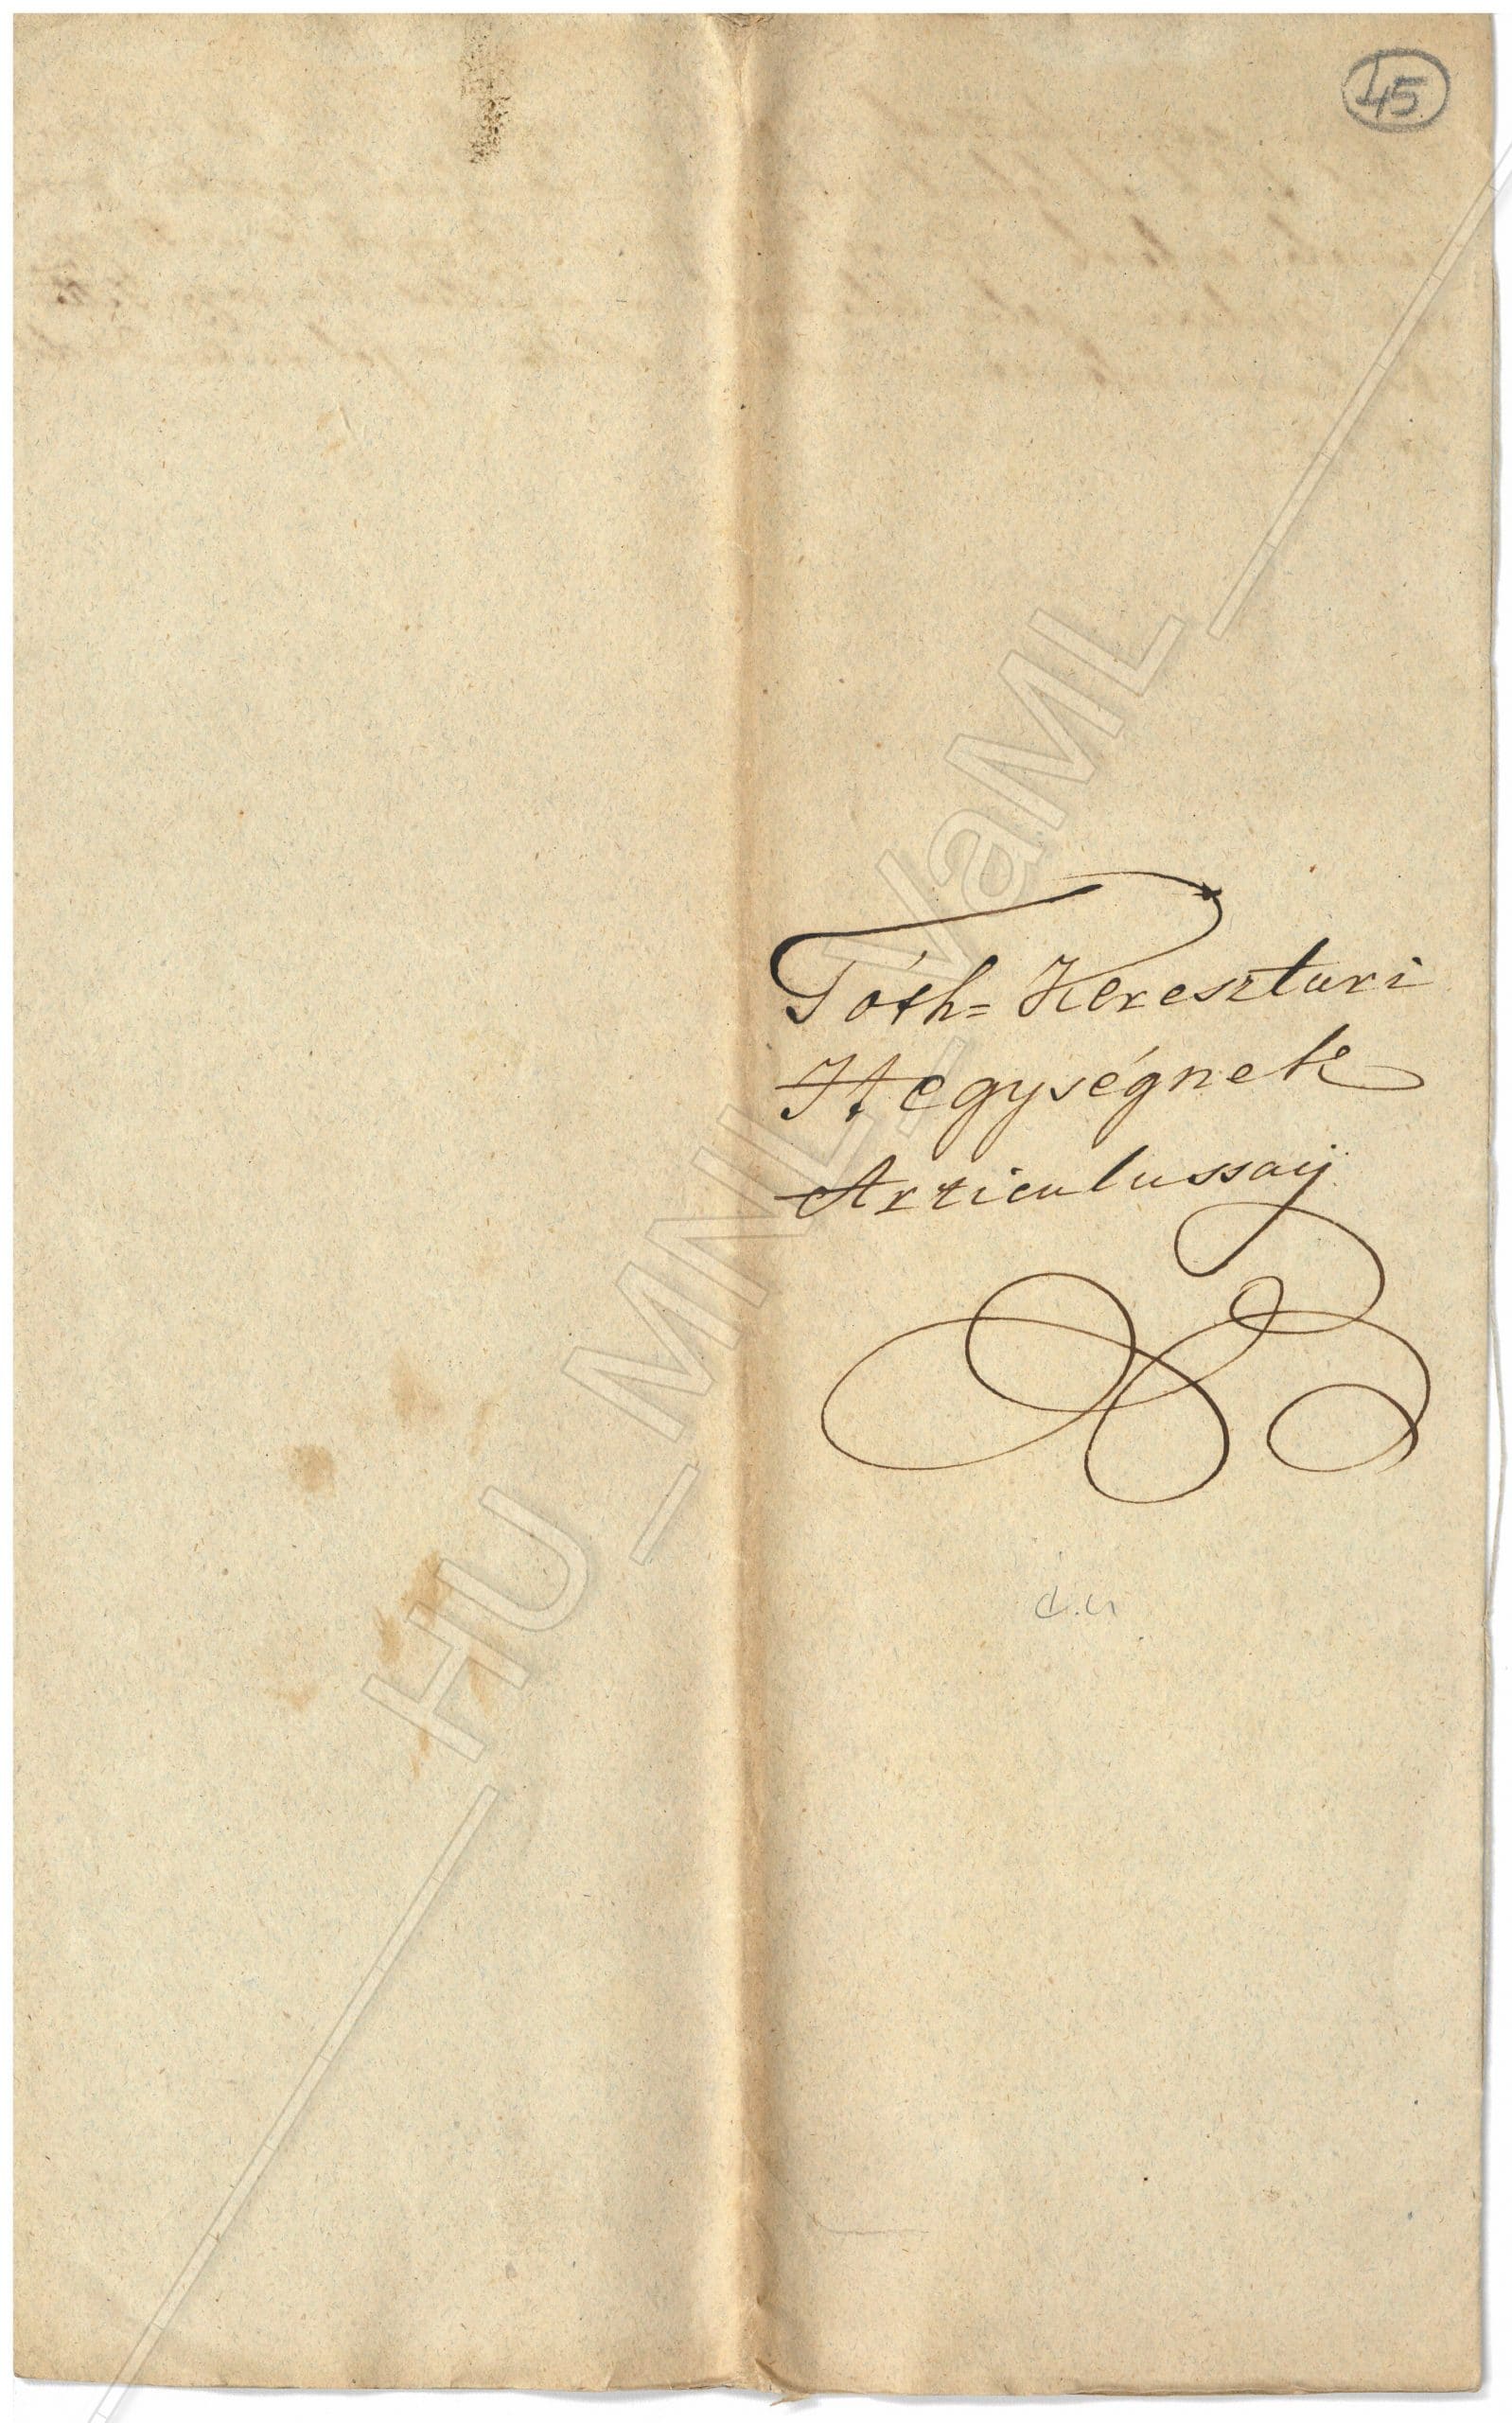 45
Tóth= Kereszturi
Hegységnek
Articulussaij
HU_MNL_VaML